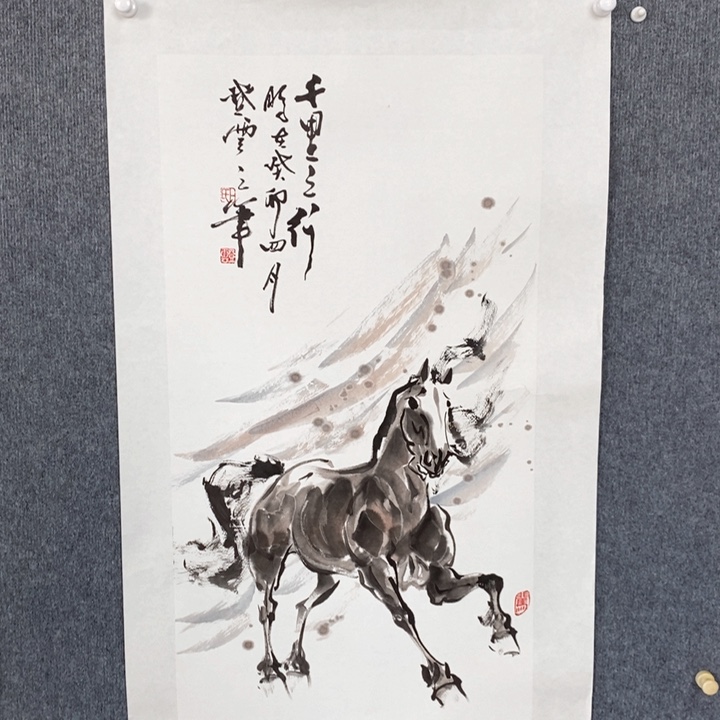 千里之行
时在癸卯四月
盛云之筆